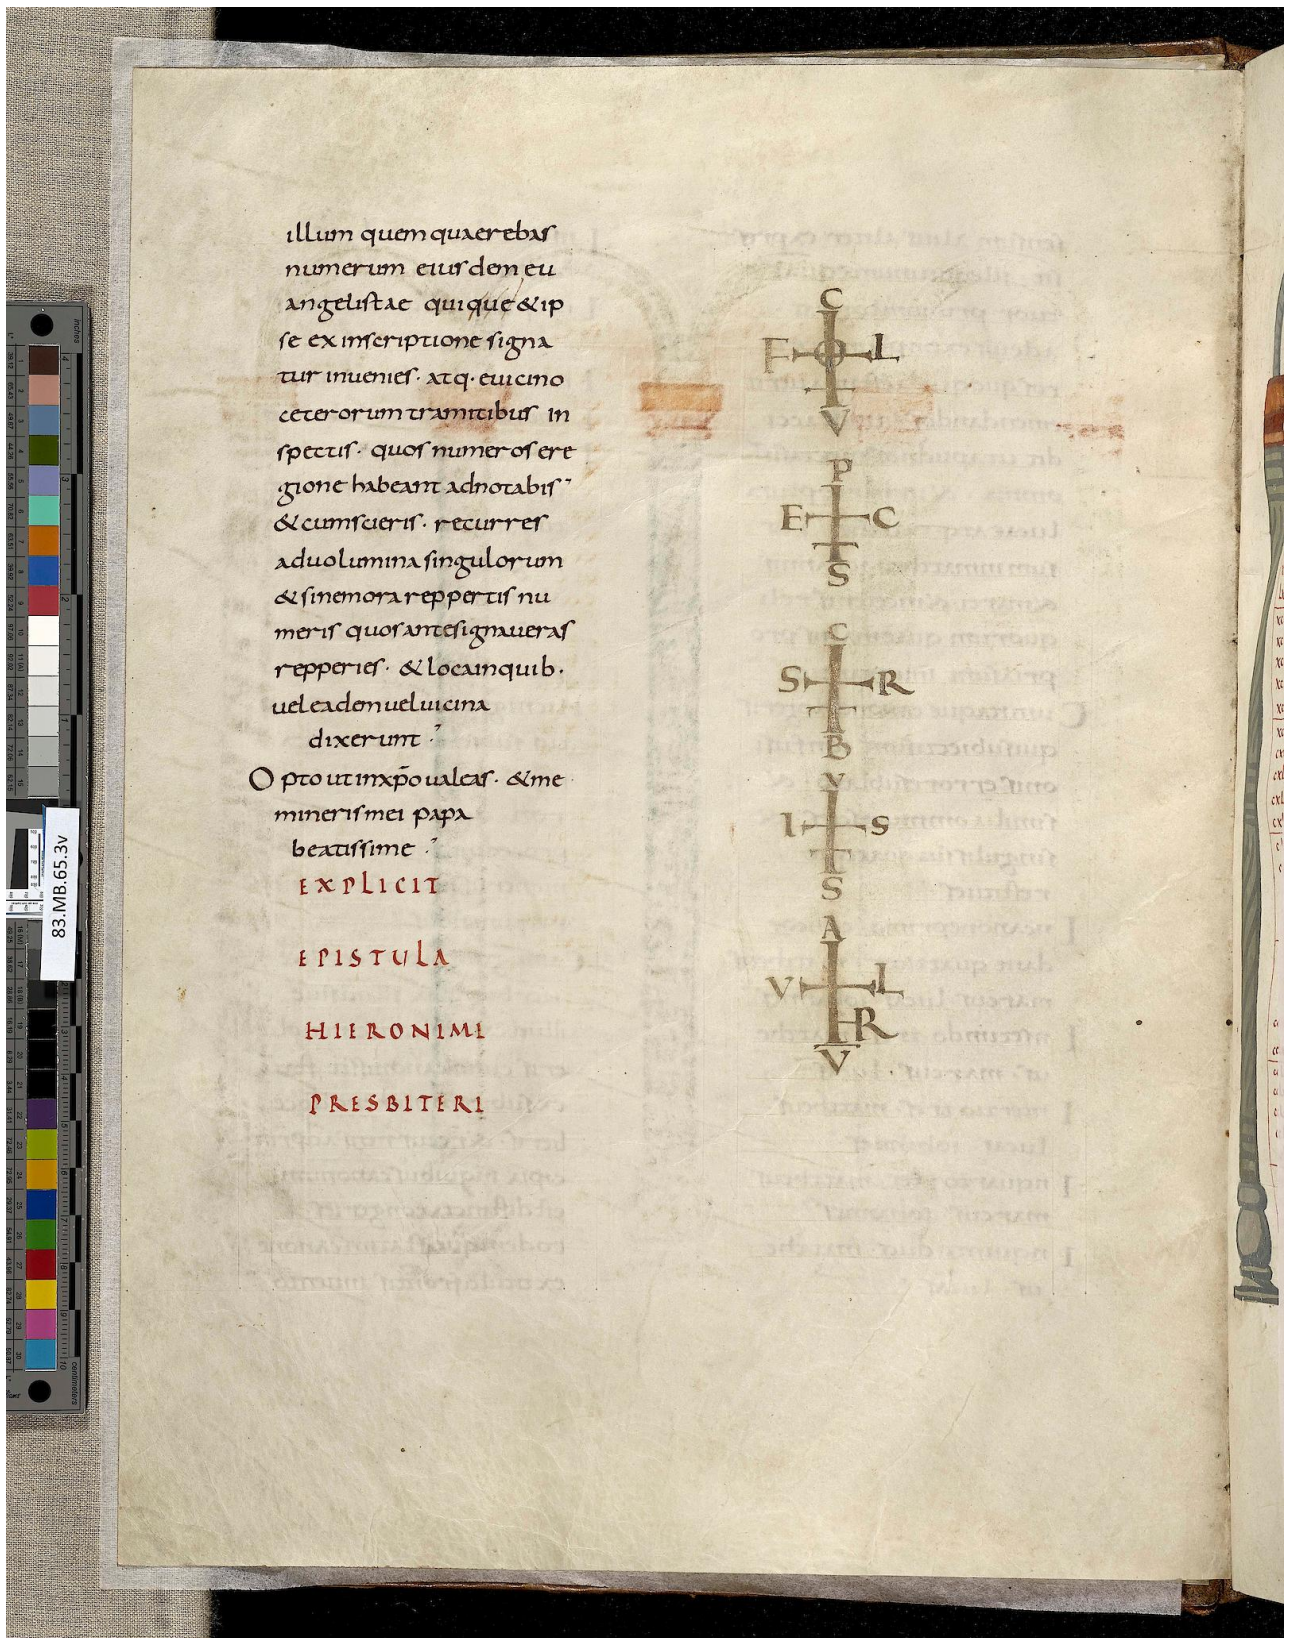 illum quem quaerebas
numerum eiusdem eu
angelistae qui que & ip
se ex inscriptione signa
tur inuenies. atq. euicino
ceterorum tramitibus in
spectis. quos numeros ere
gione habeant adnotabis
& cum scieris. recurres
ad uolumina singulorum
& sine mora reppertis nu
meris quos ante signaueras
repperies. & loca in quib.
uel eadem uel uicina
dixerunt
Opto ut in xp̄o ualeas. & me
mineris mei papa
beatissime
EXPLICIT
EPISTULA
HIERONIMI
PRESBITERI
C
F O L
V
P
E C
S
C
S R
B
V
I S
S
A
V L
R
V
83.MB.65.3v
inches
centimeters